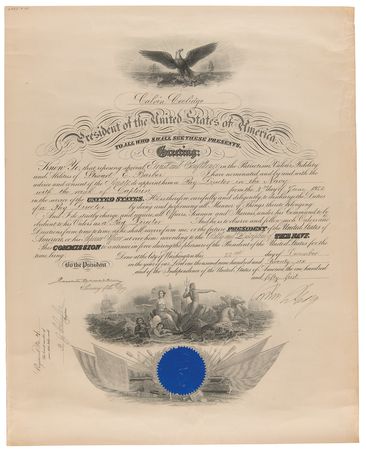 Calvin Coolidge
President of the United States of America.
TO ALL WHO SHALL SEE THESE PRESENTS,
Greeting:
Know Ye, that reposing special Trust and Confidence in the Patriotism, Valour, Fidelity
and Abilities of Stewart E. Barber I have nominated and by and with the
advice and consent of the Senate do appoint him a Pay Director in the Navy
with the rank of Captain from the 3 day of June 1926
in the service of the UNITED STATES. He is therefore carefully and diligently to discharge the Duties
of a Pay Director by doing and performing all Manner of Things thereunto belonging.
And I do strictly charge and require all Officers, Seamen and Marines under his Command to be
obedient to his Orders as a Pay Director And he is to observe and follow such Orders and
Directions from time to time as he shall receive from me or the future PRESIDENT of the United States of
America, or his Superior Officer set over him, according to the Rules and Discipline of THE NAVY.
This COMMISSION to continue in force during the pleasure of the President of the United States for the
time being.
Done at the City of Washington this 22nd day of December
in the year of our Lord one thousand nine hundred and Twenty six
and of the Independence of the United States of America the one hundred
and fifty first
By the President
Calvin Coolidge
Secretary of the Navy